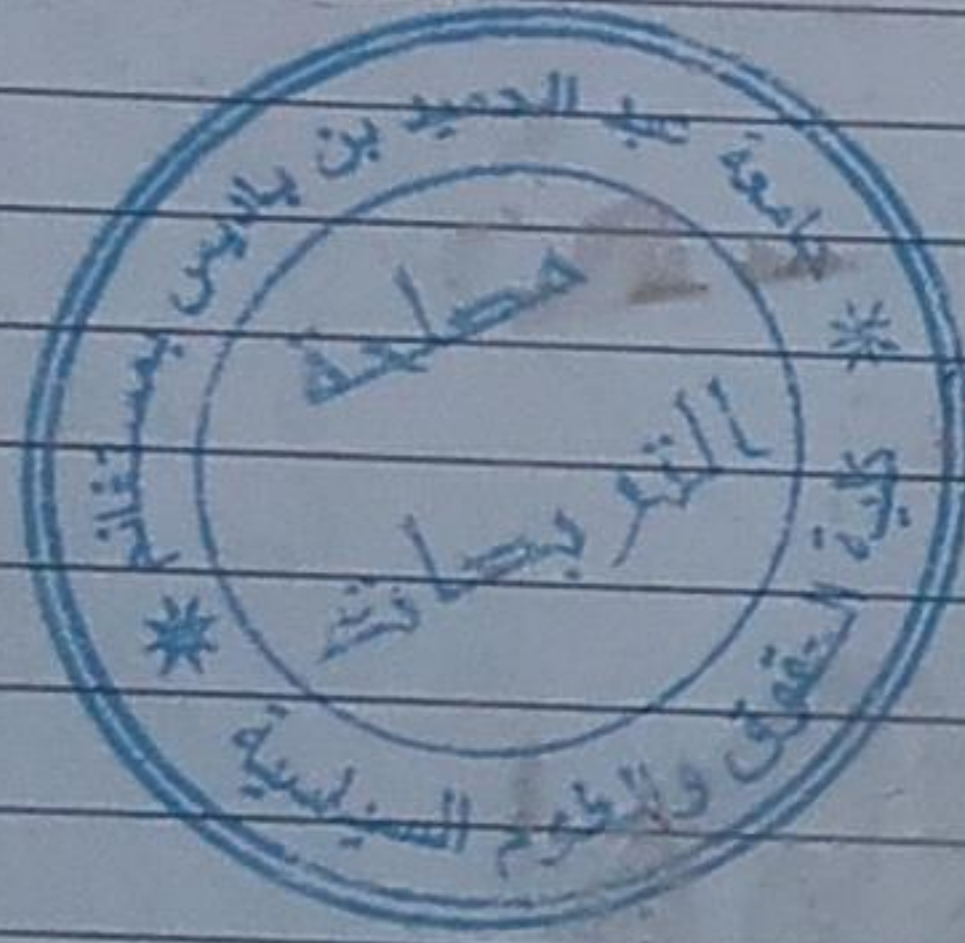 جامعة عبد الحميد بن باديس بمستغانم
كلية الحقوق والعلوم السياسية
مصلحة
التربصات